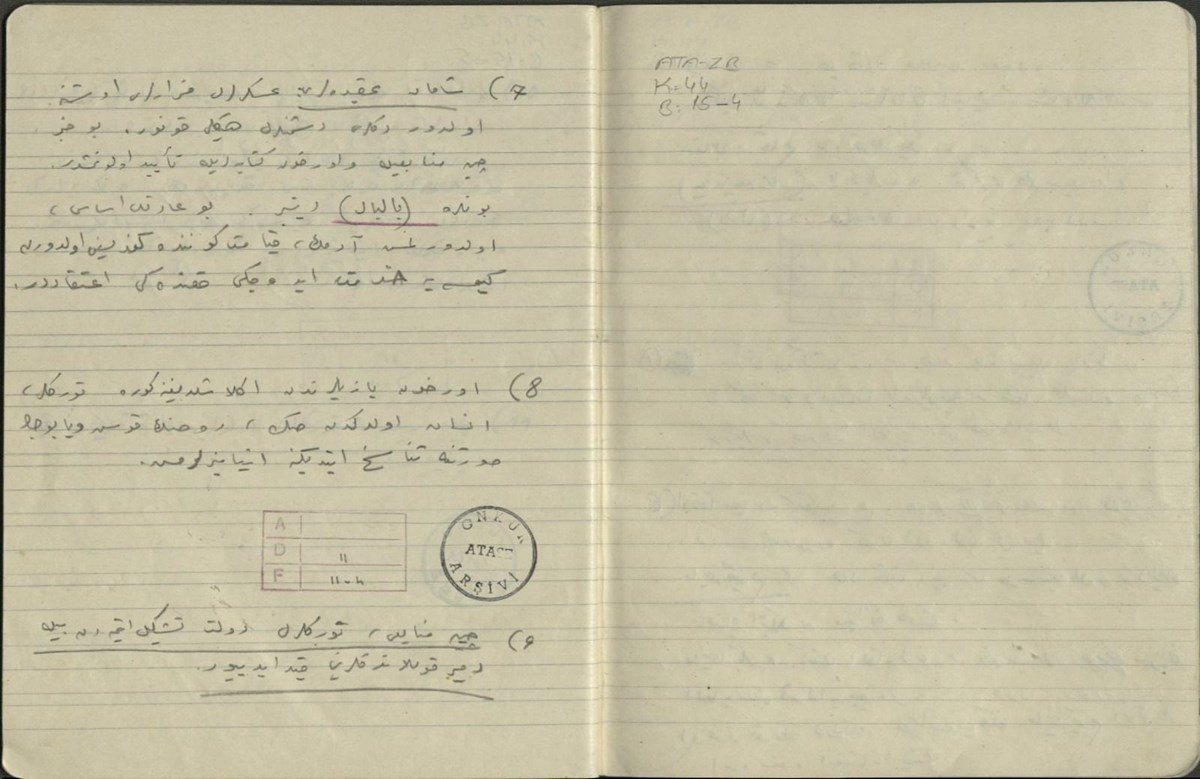 7) شامان عقیده‌لی عسکرلرك مزارلری اوستنه
اولدوردکلری دشمنلرك هیکلی قونور. بو خبر
چین منابعیله واورخون کتابه‌لریله تأیید اولونمشدر.
بونلره (بالبال) دینیر. بو عادتك اساسی،
اولدورلمش آدمك، قیامت کوننده کندیسنی اولدورن
کیمسه‌یه خدمت ایده‌جکی حقنده‌کی اعتقاددر.
8) اورخون یازیلرندن اکلاشیلدیغنه کوره تورکلر،
انسان اولدکدن صکره، روحنك قوش ویا بوجك
صورتنه تناسخ ایتدیکنه اینانیرلرمش.
A
D 11
F 11-4
GNKUR
ATASE
ARŞİVİ
9) چین منابعی، تورکلرك دولت تشکیل ایتمه‌دن بیله
دمیر قوللاندقلرینی قید ایدییور.
ATA-ZB
K: 44
B: 15-4